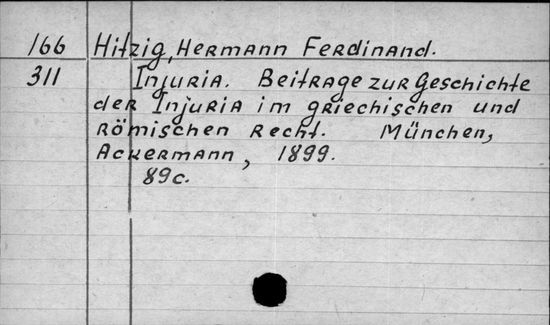 166 Hitzig, Hermann Ferdinand.
311 Injuria. Beitrage zur Geschichte
der Injuria im griechischen und
römischen Recht. München,
Ackermann, 1899.
89c.